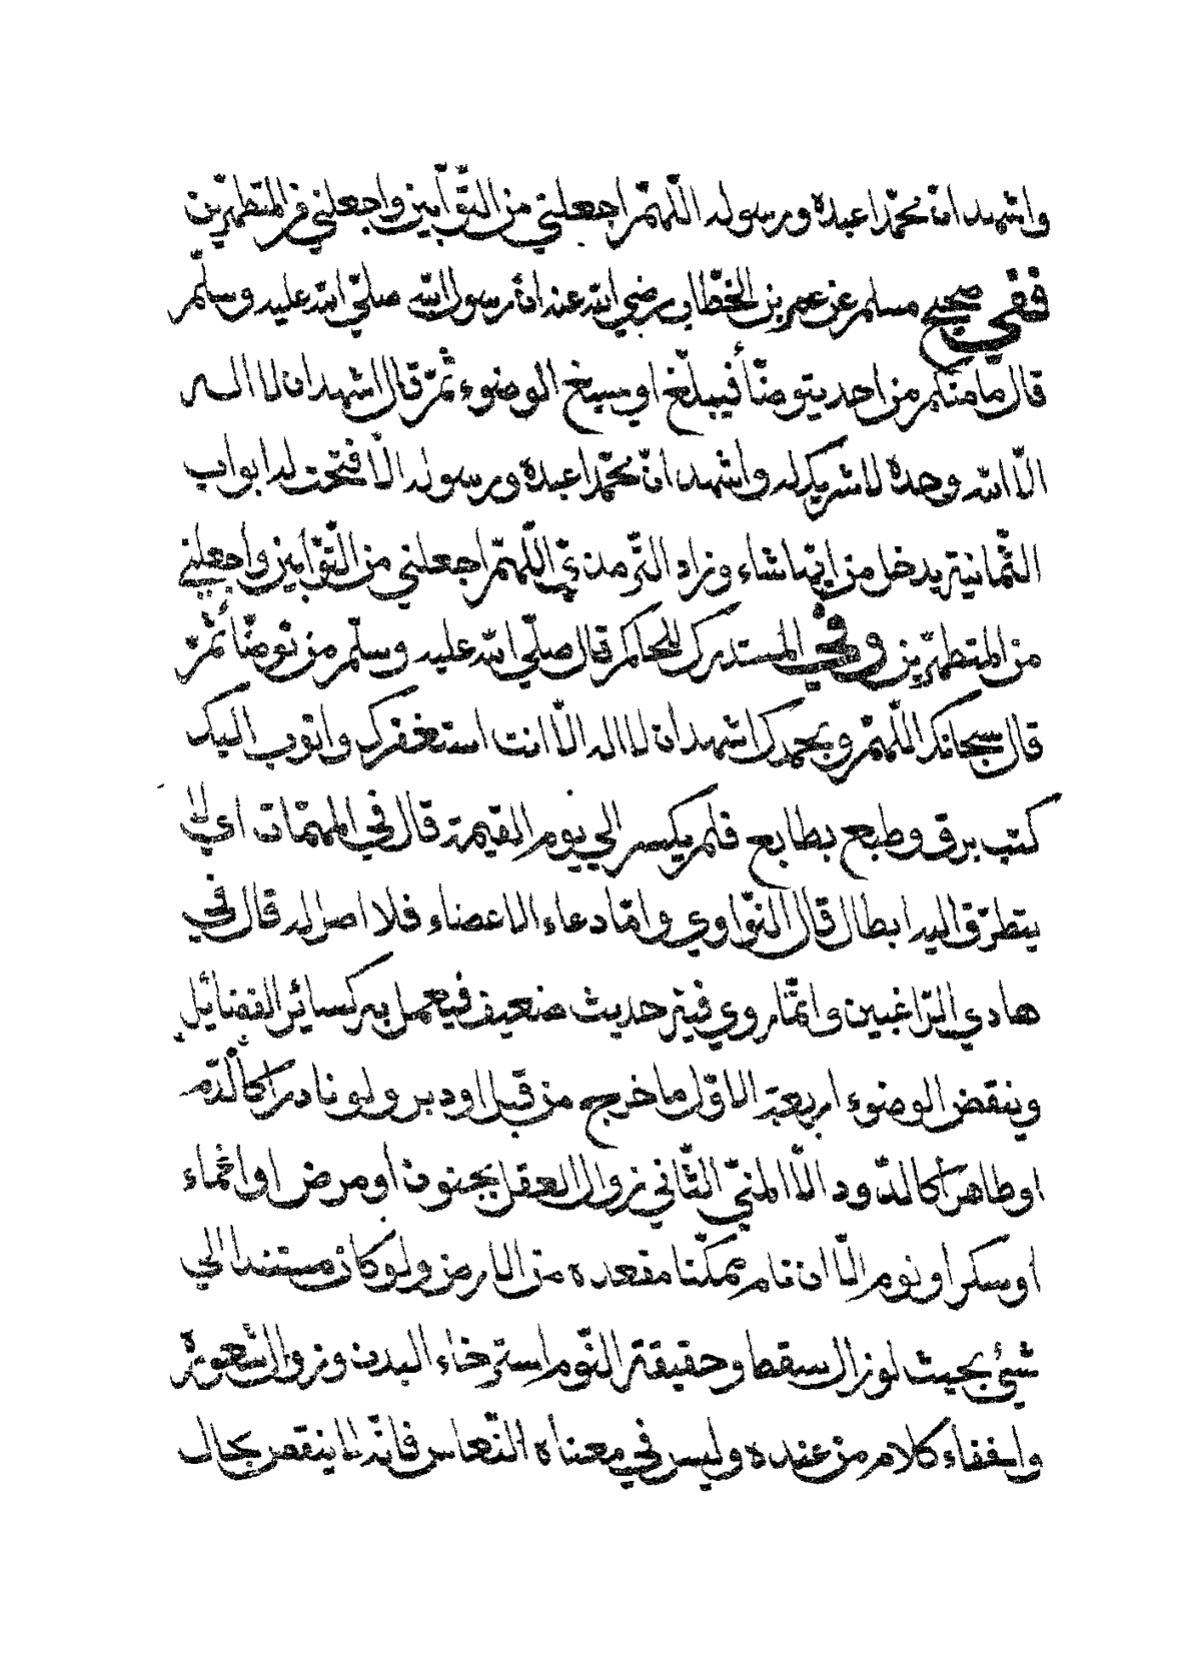 واشهد ان محمّدا عبده ورسوله اللّهمّ اجعلني من التّوّابين واجعلني من المتطهّرين
ففي صحيح مسلم عن عمر بن الخطّاب رضي الله عنه ان رسول الله صلّي الله عليه وسلّم
قال ما منكم من احد يتوضّأ فيبلّغ او يسبغ الوضوء ثمّ قال اشهد ان لا اله
الّا الله وحده لا شريك له واشهد انّ محمّدا عبده ورسوله الّا فتحت له ابواب
الثّمانية يدخل من ايّها شاء وزاد التّرمذيّ اللّهمّ اجعلني من التّوّابين واجعلني
من المتطهّرين وفي المستدرك للحاكم قال صلّي الله عليه وسلّم من توضّأ ثمّ
قال سبحانك اللّهمّ وبحمدك اشهد ان لا اله الّا انت استغفرك واتوب اليك
كتب برق وطبع بطابع فلم يكسر الي يوم القيمة قال في المهمّات اي لا
يتطرّق اليه ابطال قال النّواوي وامّا دعاء الاعضاء فلا اصل له قال في
هادي الرّاغبين وانّما روي فيه حديث ضعيف فيعمل به كسائر الفضائل
وينقض الوضوء اربعة الاوّل ما خرج من قبل او دبر ولو نادرا كالدّم
او طاهرا كالدّود الّا المنيّ الثّاني زوال العقل بجنون او مرض او اغماء
او سكر او نوم الّا ان نام ممكّنا مقعده من الارض ولو كان مستندا الي
شيئ بحيث لو زال سقط وحقيقة النّوم استرخاء البدن وزوال الشعور
واخفاء كلام من عنده وليس في معناه النّعاس فانّه لا ينقض بحال